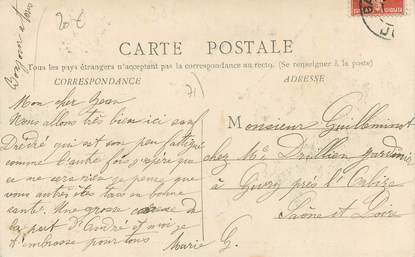 20€
Bonjour a tous
CARTE POSTALE
Tous les pays étrangers n'acceptent pas la correspondance au recto. (Se renseigner à la poste)
CORRESPONDANCE
ADRESSE
71
Mon cher Jean
Nous allons très bien ici sauf
Dredré qui est un peu fattigué
comme l'autre fois j'espére que
ce ne sera rien je pense que
vous autres êtes tous en bonne
santé. Une grosse caresse de
la part d'André et moi je
t'embrasse pour tous
Marie G.
Monsieur Guilleminot
chez Mr Drillien gardinier
à Givry prés l'Orbize
Saône et Loire